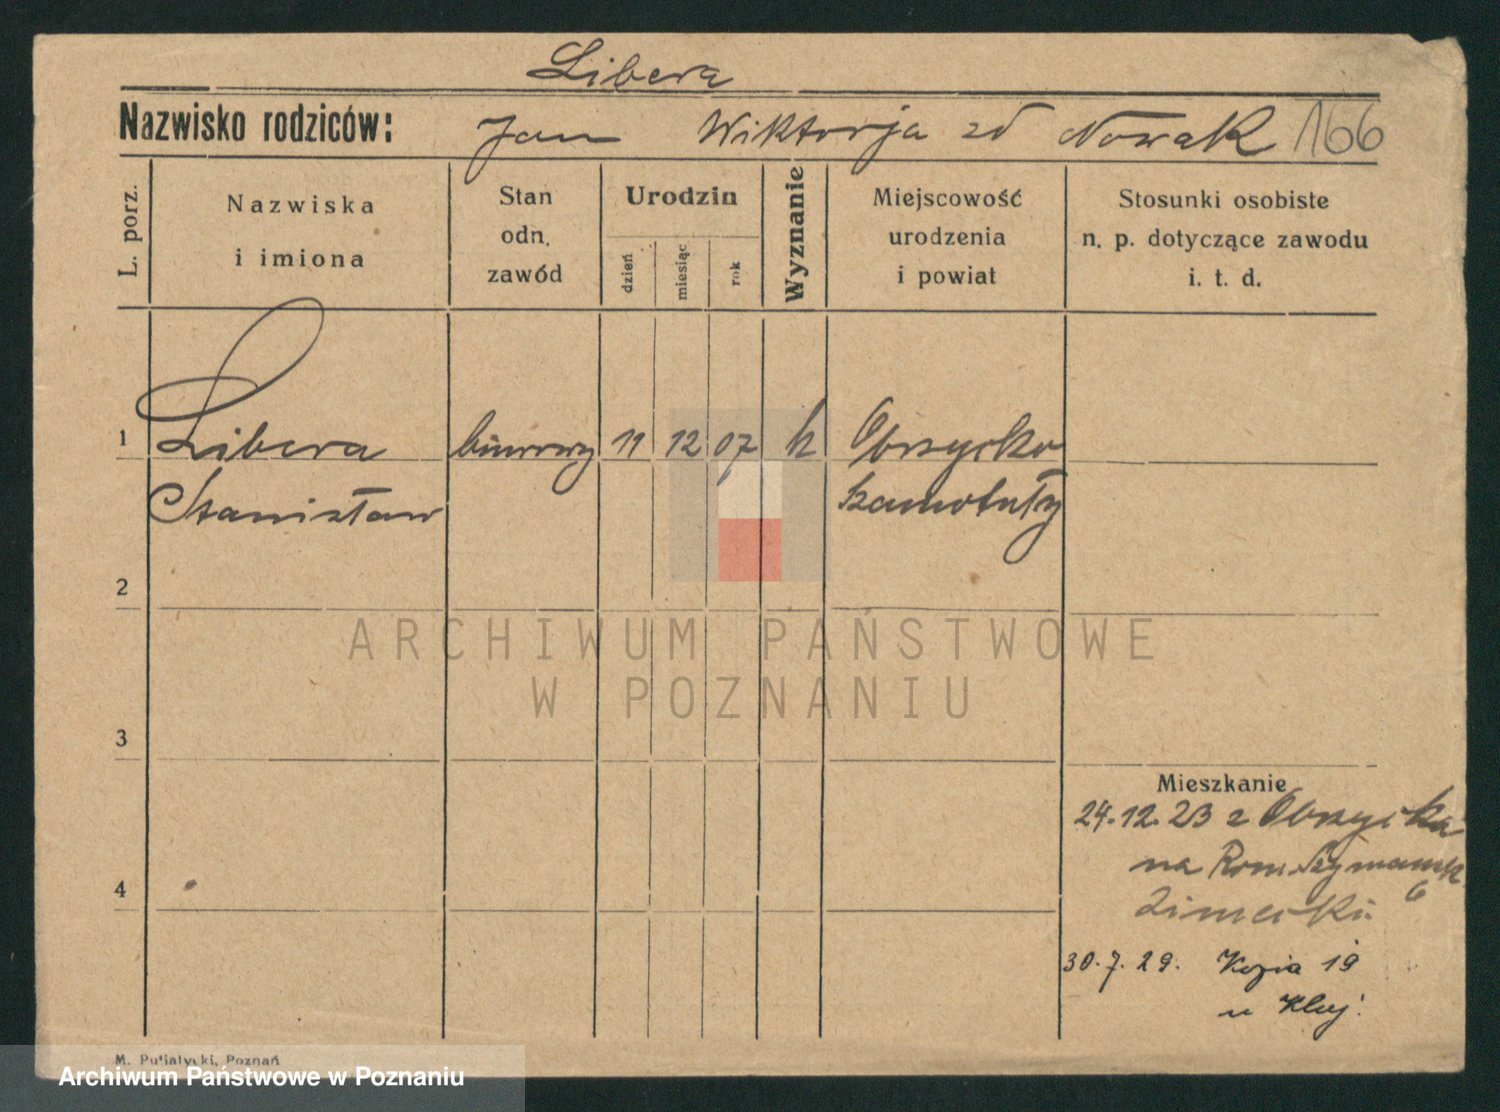 Libera
Nazwisko rodziców: Jan Wiktorja zd Nowak 166
L. porz.
Nazwiska
i imiona
Stan
odn.
zawód
Urodzin
dzień
miesiąc
rok
Wyznanie
Miejscowość
urodzenia
i powiat
Stosunki osobiste
n. p. dotyczące zawodu
i. t. d.
1 Libera biurowy 11 12 07 k Obrzycko
Stanisław Szamotuły
2
ARCHIWUM PAŃSTWOWE
W POZNANIU
3
Mieszkanie
24.12.23 z Obrzycka
na Rom. Szymańsk.
6
4
30.7.29. Kozia 19
u
M. Putiatycki, Poznań
Archiwum Państwowe w Poznaniu